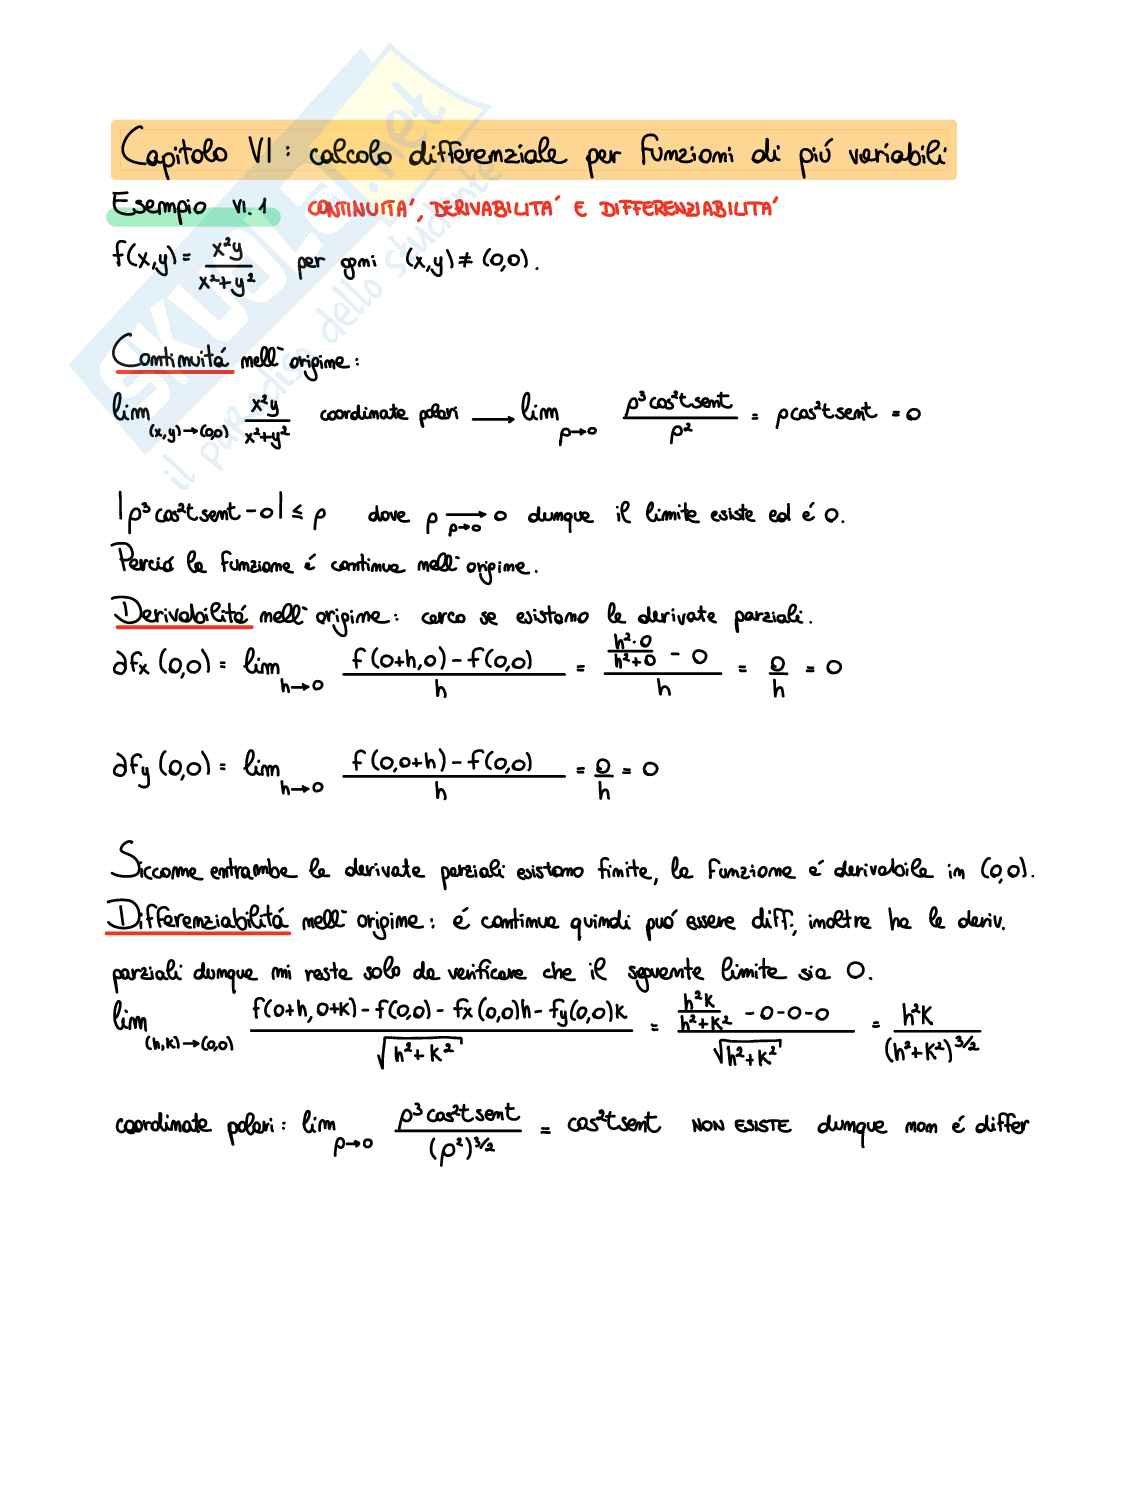 Capitolo VI: calcolo differenziale per funzioni di piú variabili
Esempio VI.1 CONTINUITA', DERIVABILITA' E DIFFERENZIABILITA'
f(x,y) = x²y / x²+y² per ogni (x,y) ≠ (0,0).
Continuitá nell'origine:
lim (x,y)→(0,0) x²y / x²+y² coordinate polari → lim ρ→0 ρ³cos²t sent / ρ² = ρcos²t sent = 0
|ρ³cos²t sent - 0| ≤ ρ dove ρ → 0 ρ→0 dunque il limite esiste ed é 0.
Perció la funzione é continua nell'origine.
Derivabilitá nell'origine: cerco se esistono le derivate parziali.
∂fx (0,0) = lim h→0 f(0+h,0) - f(0,0) / h = h²·0 / h²+0 - 0 / h = 0 / h = 0
∂fy (0,0) = lim h→0 f(0,0+h) - f(0,0) / h = 0 / h = 0
Siccome entrambe le derivate parziali esistono finite, la funzione é derivabile in (0,0).
Differenziabilitá nell'origine: é continua quindi puó essere diff., inoltre ha le deriv.
parziali dunque mi resta solo da verificare che il seguente limite sia 0.
lim (h,k)→(0,0) f(0+h, 0+k) - f(0,0) - fx(0,0)h - fy(0,0)k / √h²+k² = h²k / h²+k² - 0-0-0 / √h²+k² = h²k / (h²+k²)^3/2
coordinate polari: lim ρ→0 ρ³cos²t sent / (ρ²)^3/2 = cos²t sent NON ESISTE dunque non é differ
SKUOLA.net
il paradiso dello studente